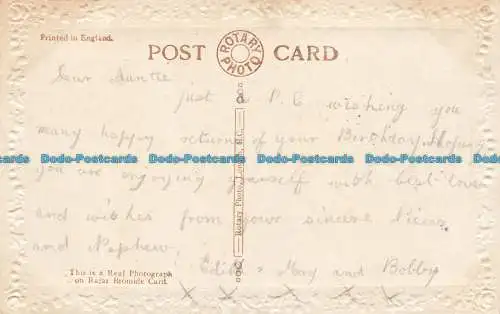 Printed in England.
POST CARD
ROTARY PHOTO
Dear Auntie
just a P.C wishing you
many happy returns of your Birthday. Hoping
Dodo-Postcards Dodo-Postcards Dodo-Postcards Dodo-Postcards
you are enjoying yourself with best love
and wishes from your sincere Nieces
and Nephew,
Edith & May and Bobby
x x x x x
Rotary Photo, London, E.C.
This is a Real Photograph
on Rajar Bromide Card.